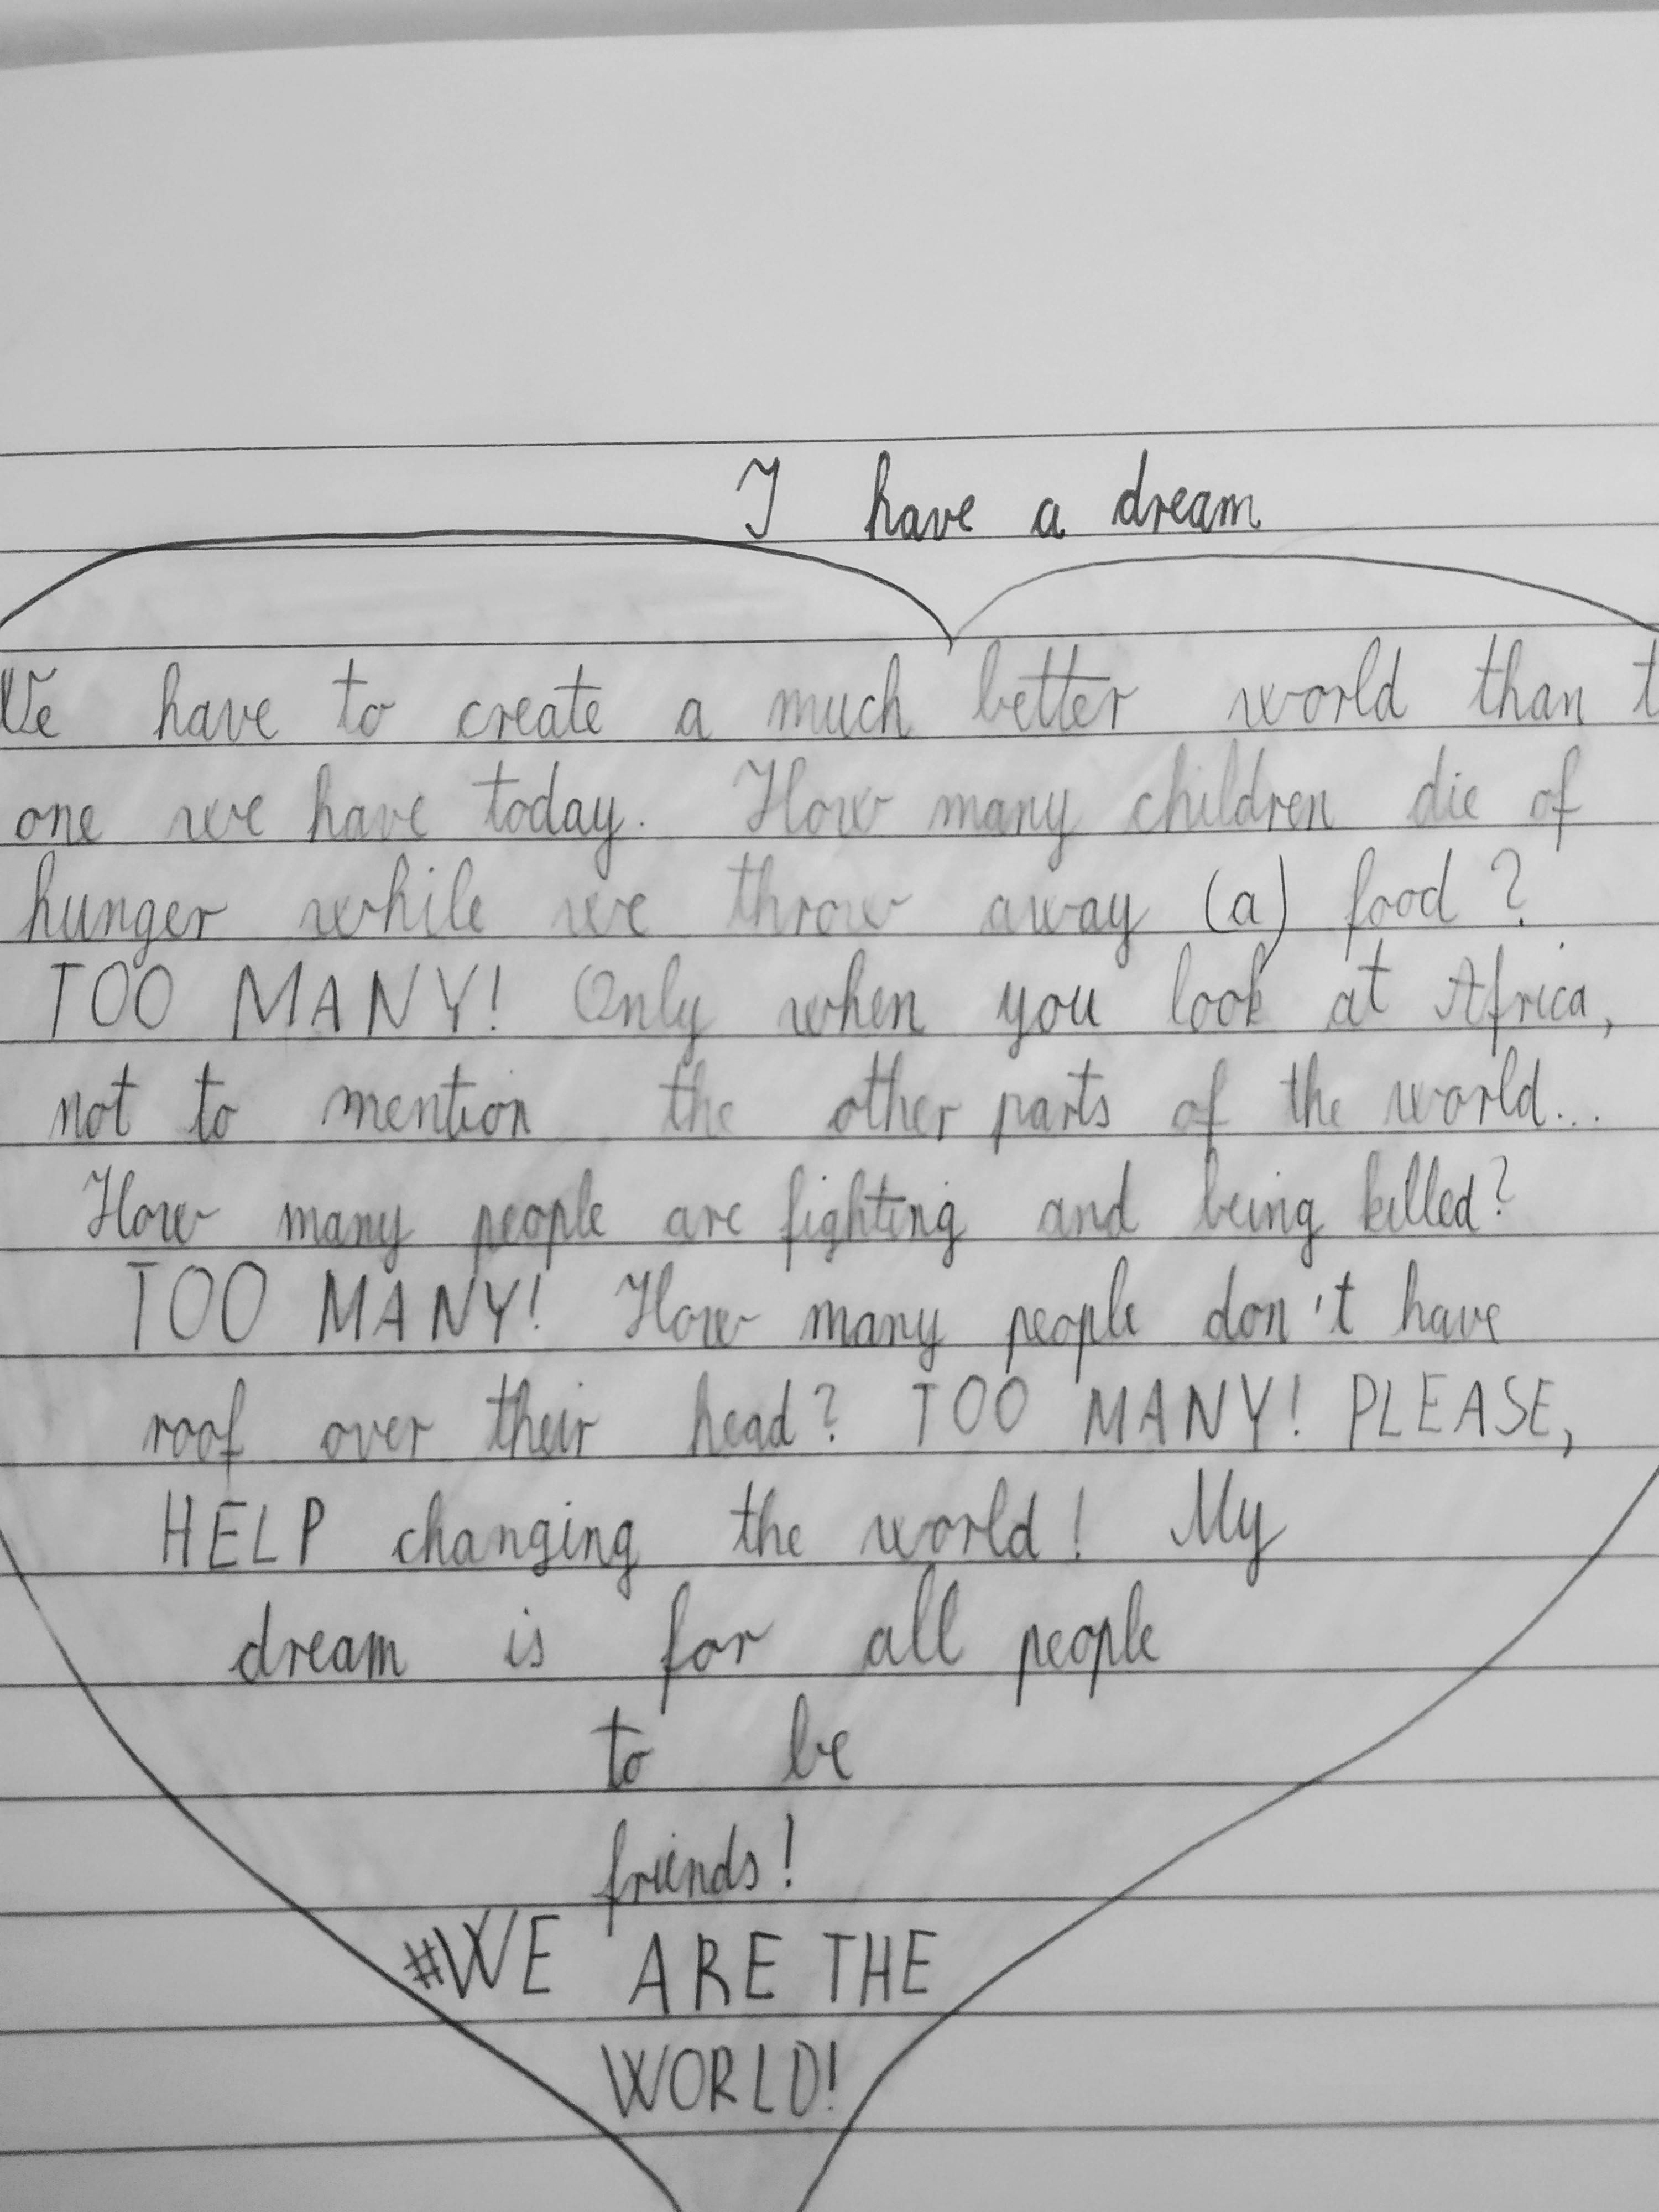 I have a dream
We have to create a much better world than t
one we have today. How many children die of
hunger while we throw away (a) food?
TOO MANY! Only when you look at Africa,
not to mention the other parts of the world...
How many people are fighting and being killed?
TOO MANY! How many people don't have
roof over their head? TOO MANY! PLEASE,
HELP changing the world! My
dream is for all people
to be
friends!
#WE ARE THE
WORLD!